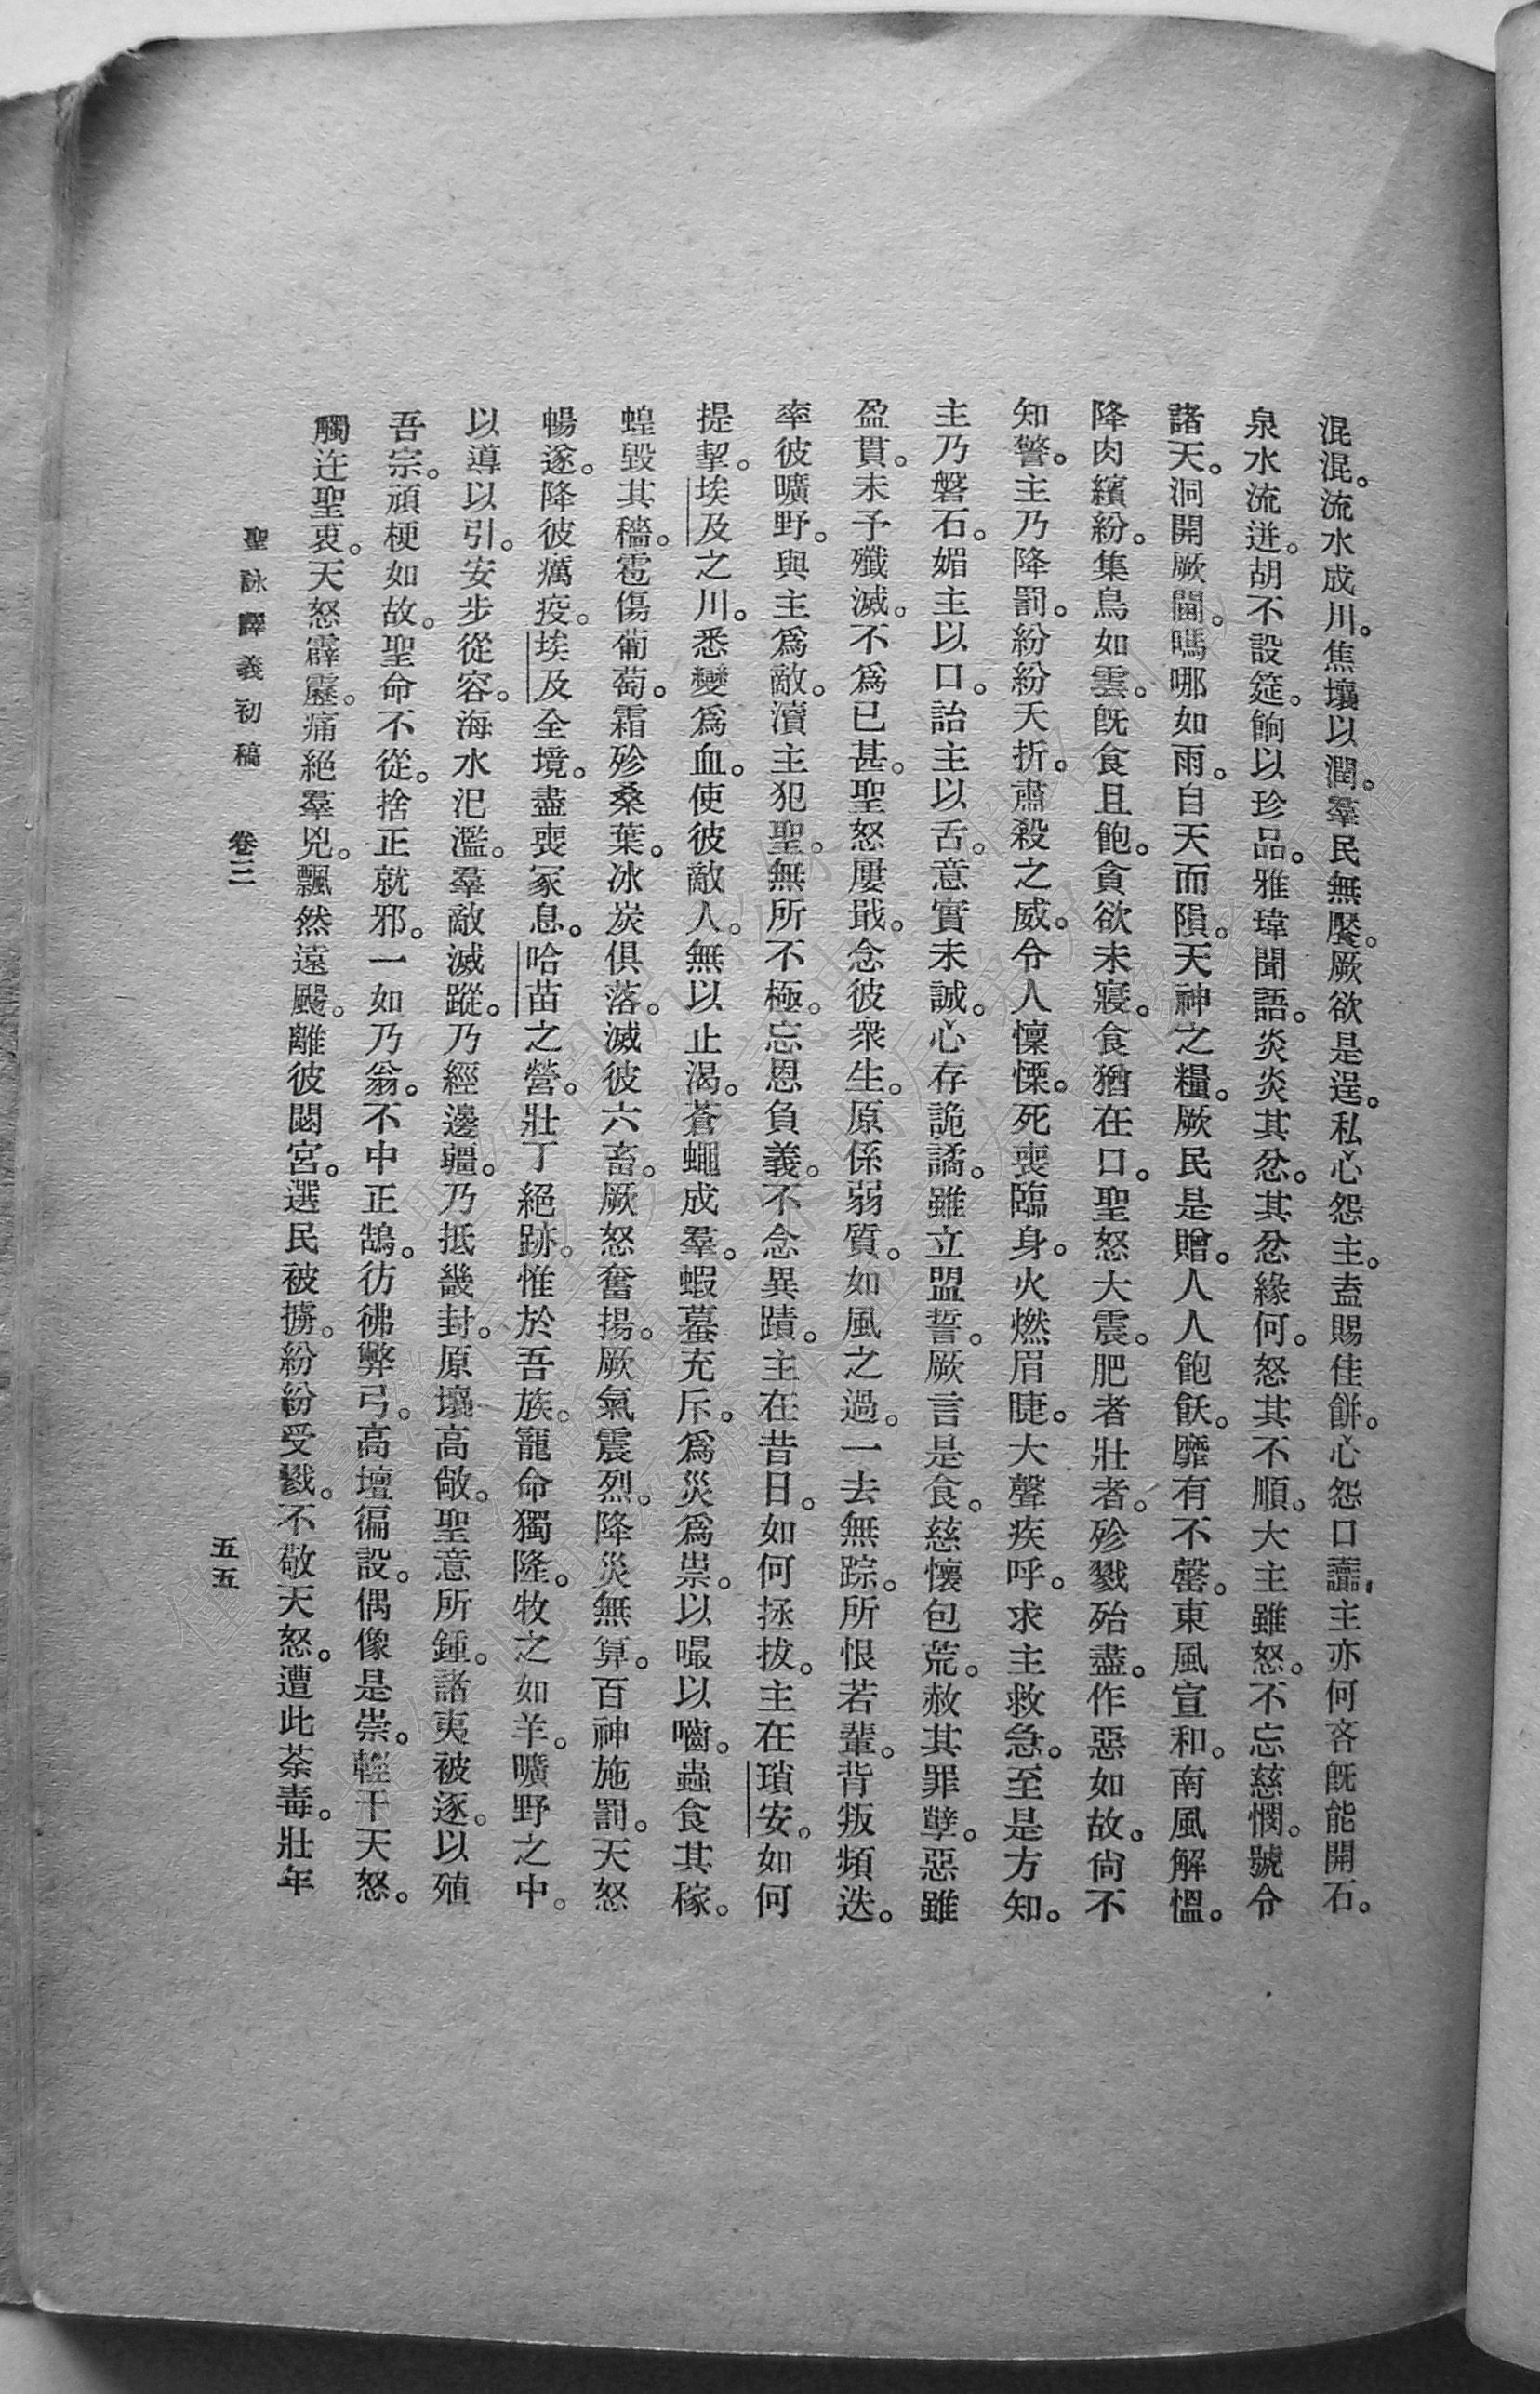 混混。流水成川。焦壤以潤。羣民無饜。厥欲是逞。私心怨主。盍賜佳餅。心怨口讟。主亦何吝既能開石。
泉水流迸。胡不設筵。餉以珍品。雅瑋聞語。炎炎其忿。其忿緣何。怒其不順。大主雖怒。不忘慈憫。號令
諸天。洞開厥閶。嗎哪如雨。自天而隕。天神之糧。厥民是贈。人人飽飫。靡有不罄。東風宣和。南風解慍。
降肉繽紛。集鳥如雲。既食且飽。貪欲未寢。食猶在口。聖怒大震。肥者壯者。殄戮殆盡。作惡如故。尙不
知警。主乃降罰。紛紛夭折。肅殺之威。令人懍慄。死喪臨身。火燃眉睫。大聲疾呼。求主救急。至是方知。
主乃磐石。媚主以口。詒主以舌。意實未誠。心存詭譎。雖立盟誓。厥言是食。慈懷包荒。赦其罪孽。惡雖
盈貫。未予殲滅。不爲已甚。聖怒屢戢。念彼衆生。原係弱質。如風之過。一去無踪。所恨若輩。背叛頻迭。
率彼曠野。與主爲敵。瀆主犯聖。無所不極。忘恩負義。不念異蹟。主在昔日。如何拯拔。主在瑣安。如何
提挈。埃及之川。悉變爲血。使彼敵人。無以止渴。蒼蠅成羣。蝦蟇充斥。爲災爲祟。以嘬以嚙。蟲食其稼。
蝗毀其穡。雹傷葡萄。霜殄桑葉。冰炭俱落。滅彼六畜。厥怒奮揚。厥氣震烈。降災無算。百神施罰。天怒
暢遂。降彼癘疫。埃及全境。盡喪冢息。哈苗之營。壯丁絕跡。惟於吾族。寵命獨隆。牧之如羊。曠野之中。
以導以引。安步從容。海水汜濫。羣敵滅蹤。乃經邊疆。乃抵畿封。原壤高敞。聖意所鍾。諸夷被逐。以殖
吾宗。頑梗如故。聖命不從。捨正就邪。一如乃翁。不中正鵠。彷彿弊弓。高壇徧設。偶像是崇。輕干天怒。
觸迕聖衷。天怒霹靂。痛絕羣兇。飄然遠颺。離彼閟宮。選民被擄。紛紛受戮。不敬天怒。遭此荼毒。壯年
聖詠譯義初稿 卷三 五五